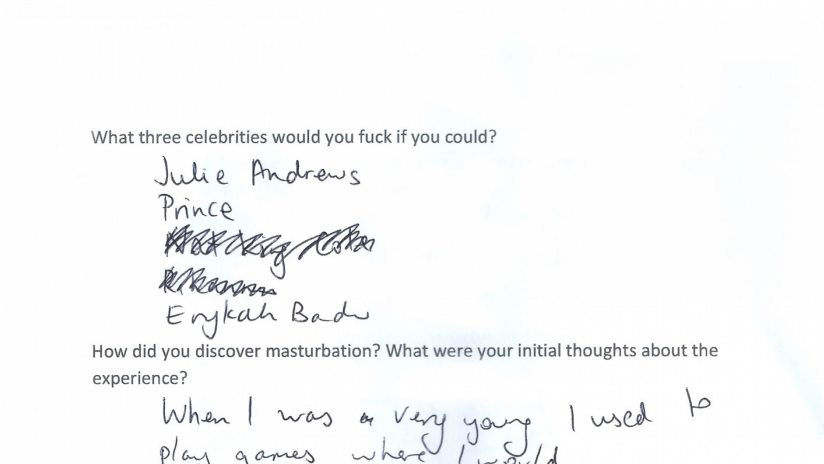 What three celebrities would you fuck if you could?
Julie Andrews
Prince
Erykah Badu
How did you discover masturbation? What were your initial thoughts about the
experience?
When I was very young I used to
play games where I would